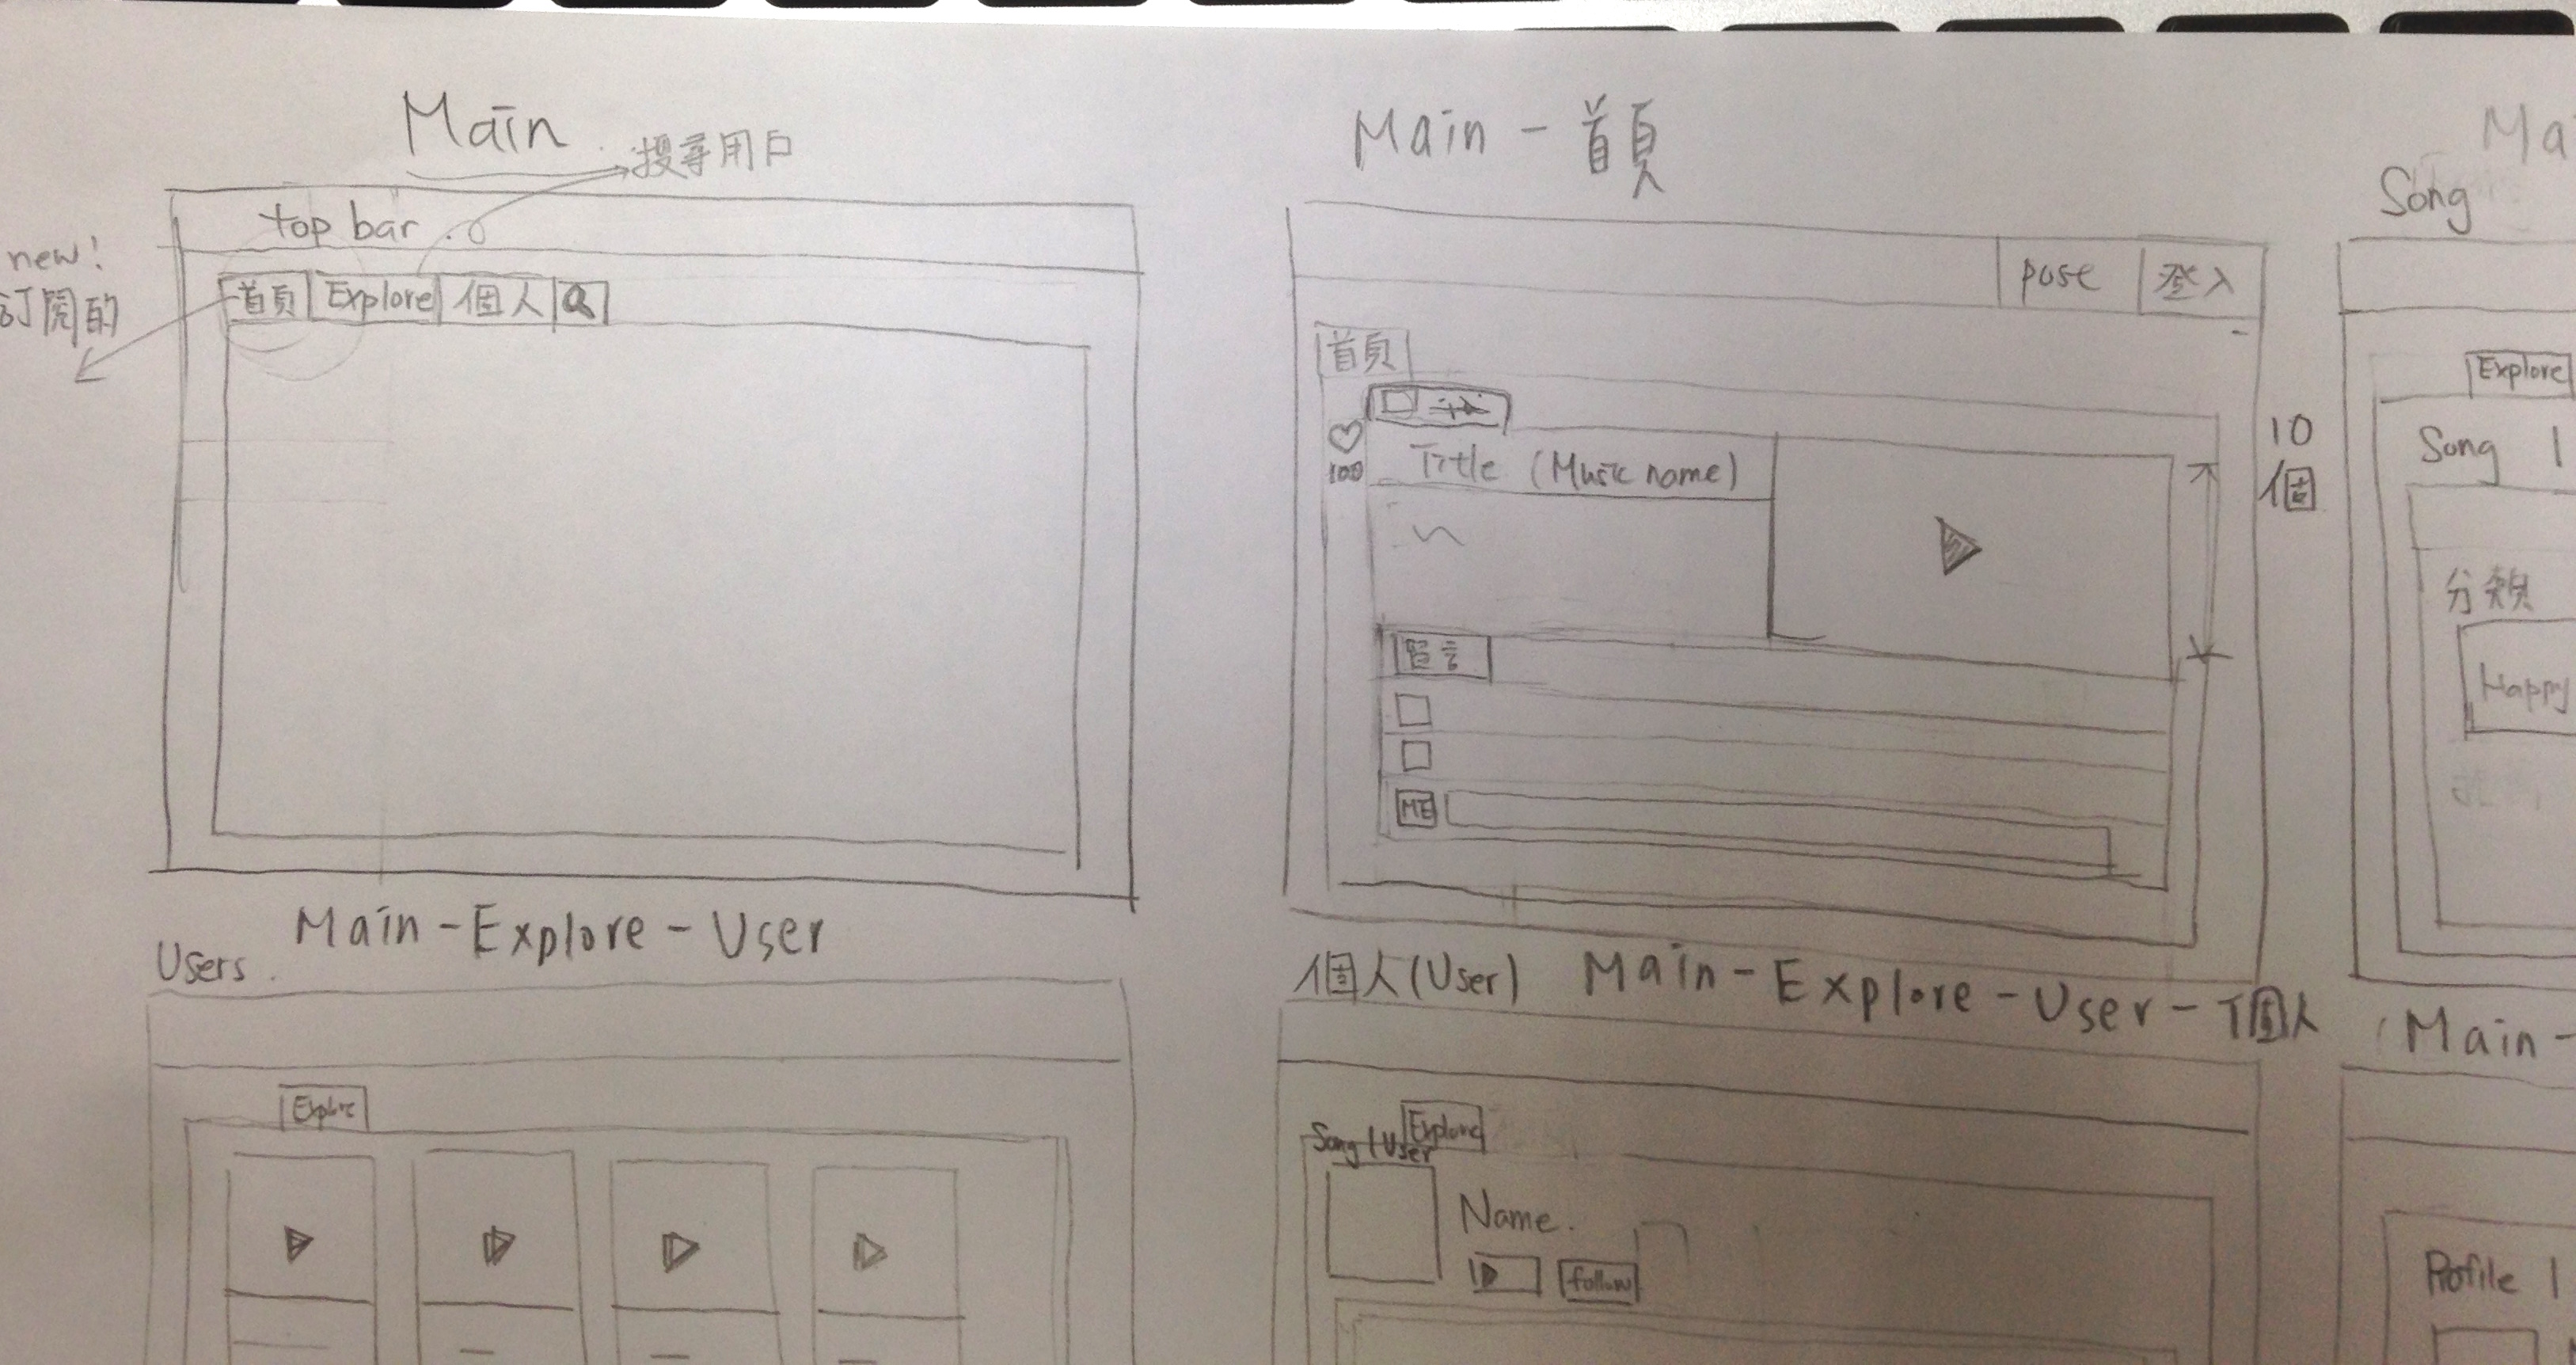 Main
搜尋用戶
top bar
new!
訂閱的
首頁 Explore 個人
Main - 首頁
post 登入
首頁
100
Title (Music name)
10
個
留言
ME
Ma
Song
Explore
Song |
分類
Happy
Main - Explore - User
Users.
Explore
個人(User) Main - Explore - User - 個人
Song / User Explore
Name.
follow
Main -
Profile |